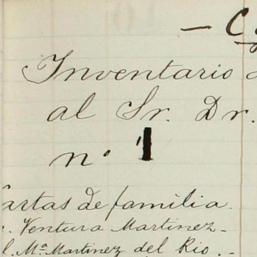 Inventario
al Sr. Dr.
n. 1
Cartas de familia.
Ventura Martinez -
Mª Martinez del Rio. -